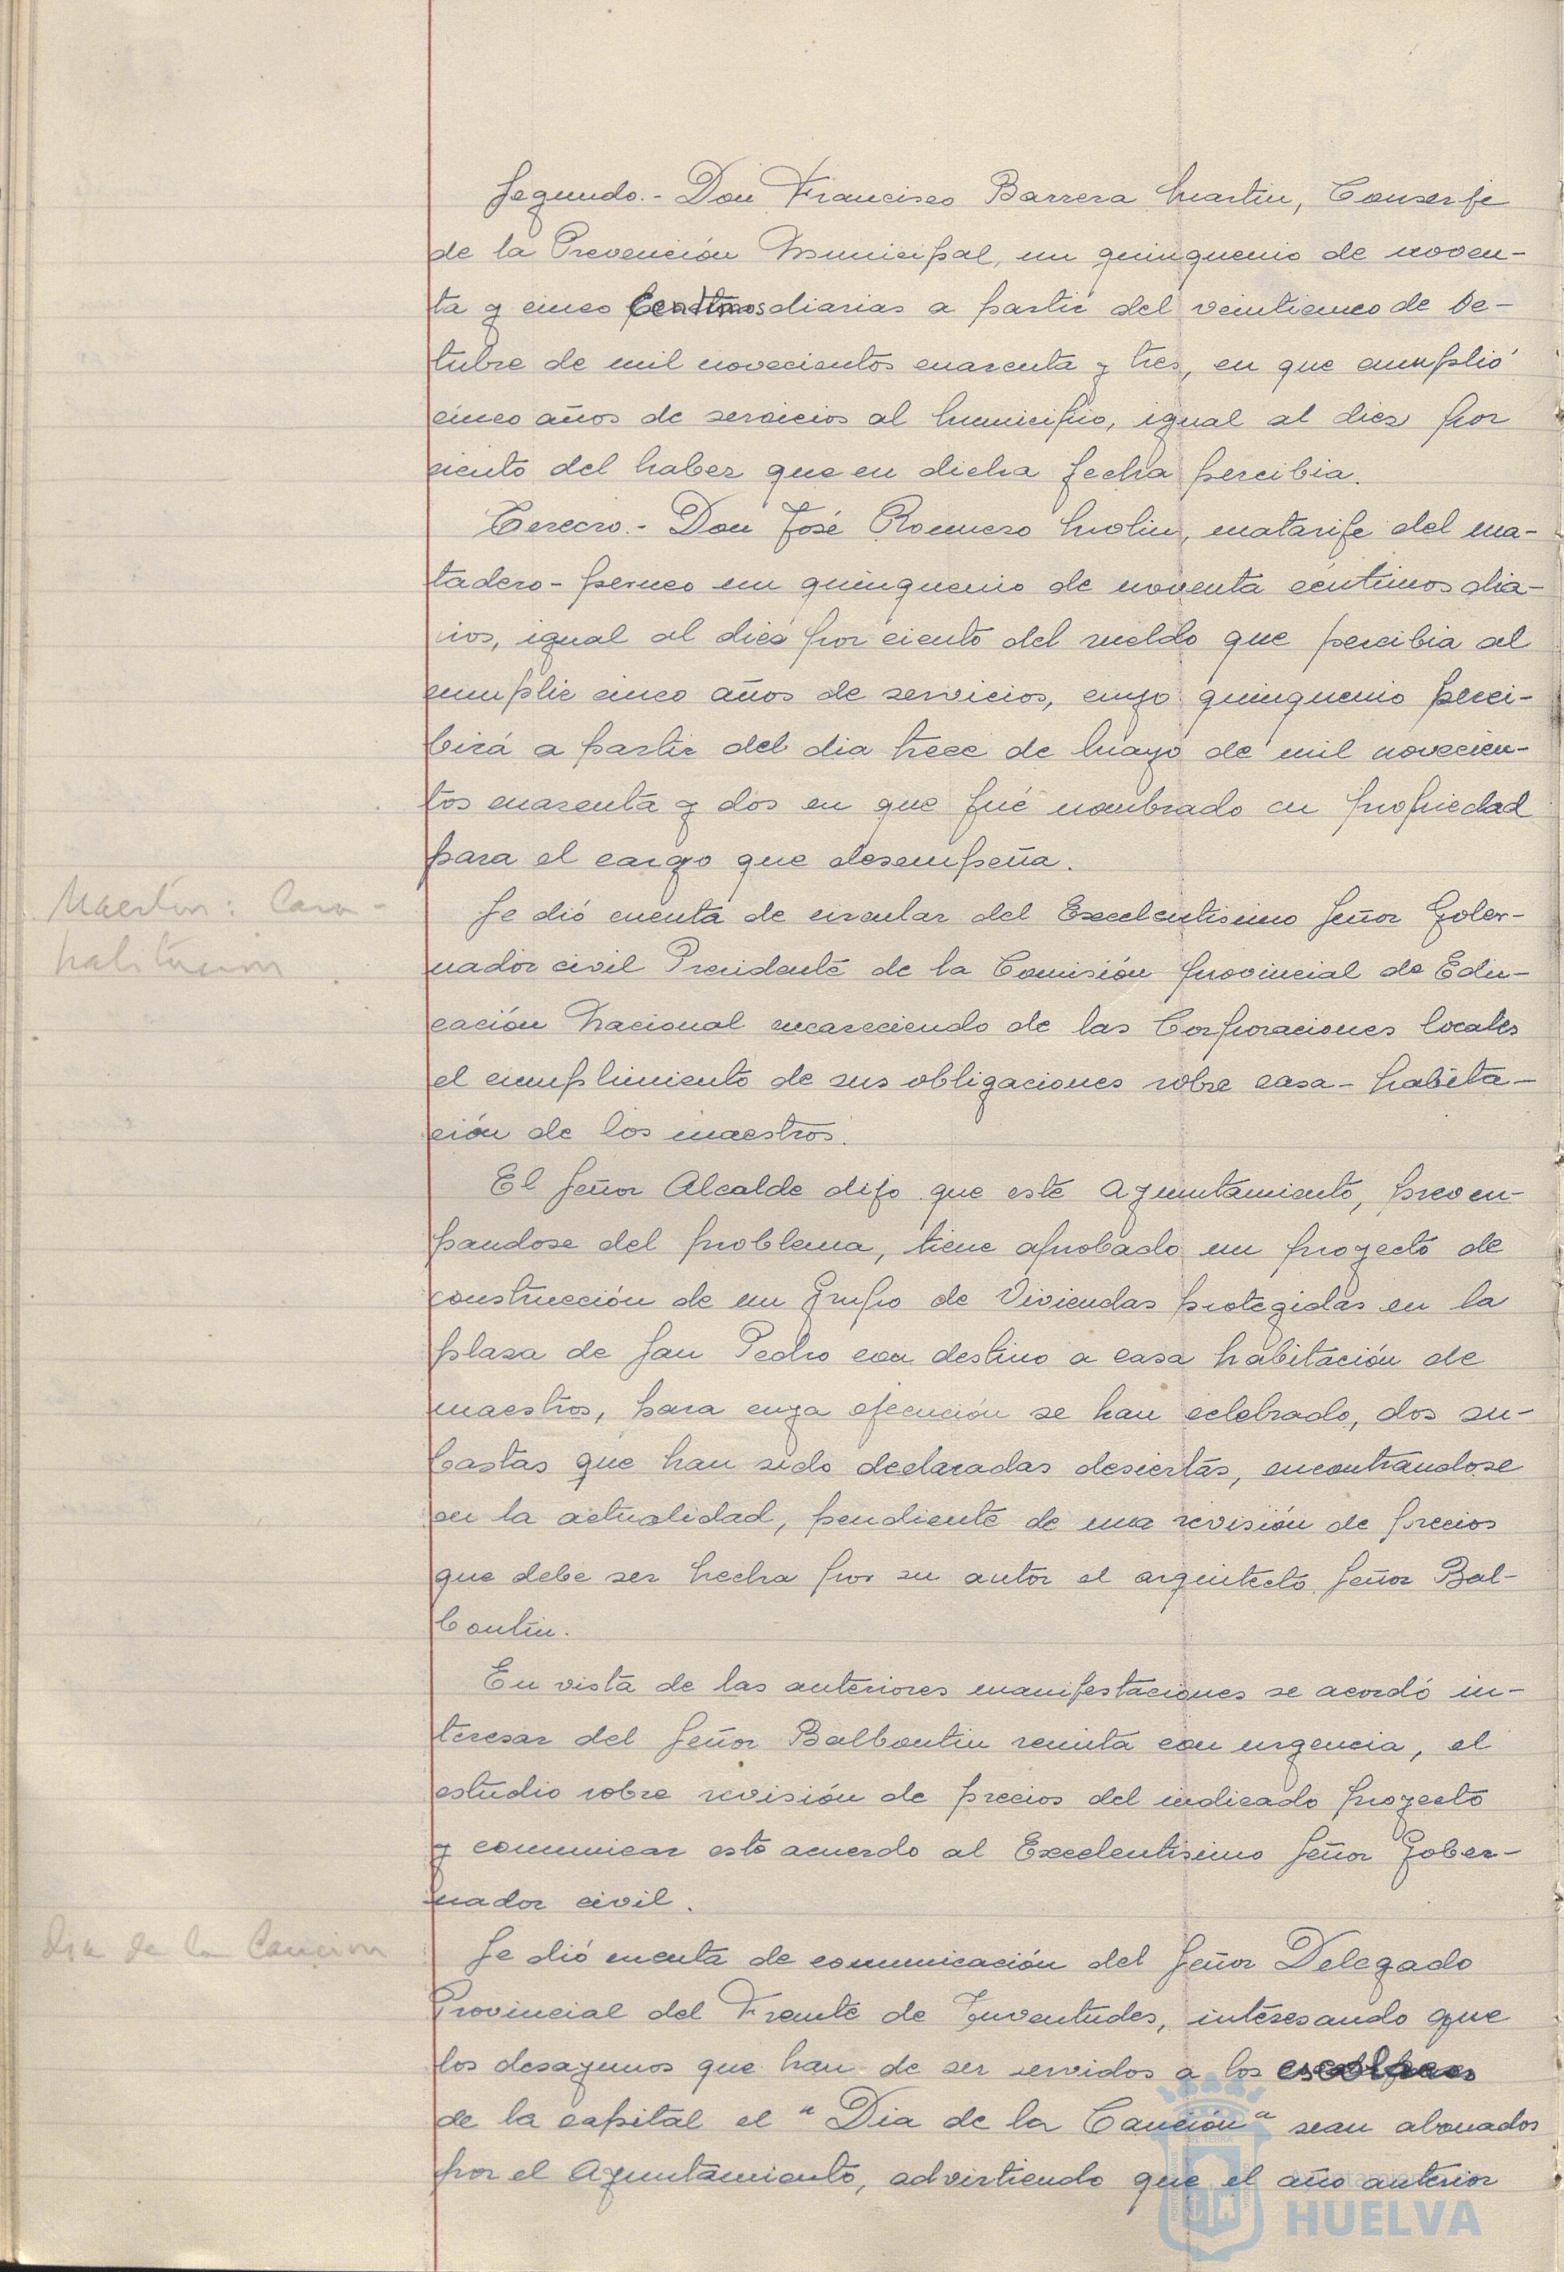 Segundo.- Don Francisco Barrera Martin, Conserje
de la Prevención Municipal, un quinquenio de noven-
ta y cinco centimos diarias a partir del veinticinco de Oc-
tubre de mil novecientos cuarenta y tres, en que cumplió
cinco años de servicios al Municipio, igual al diez por
ciento del haber que en dicha fecha percibia.
Tercero.- Don José Romero Molin, matarife del ma-
tadero- perneo un quinquenio de noventa céntimos dia-
rios, igual al diez por ciento del sueldo que percibia al
cumplir cinco años de servicios, cuyo quinquenio perci-
birá a partir del dia trece de Mayo de mil novecien-
tos cuarenta y dos en que fué nombrado en propiedad
para el cargo que desempeña.
Maestros: Casa-
habitacion
Se dió cuenta de circular del Excelentisimo Señor Gober-
nador civil Presidente de la Comisión provincial de Edu-
cación Nacional encareciendo de las Corporaciones locales
el cumplimiento de sus obligaciones sobre casa-habita-
ción de los maestros.
El Señor Alcalde dijo que este Ayuntamiento, preocu-
pandose del problema, tiene aprobado un proyecto de
construcción de un Grupo de Viviendas protegidas en la
plaza de San Pedro con destino a casa habitación de
maestros, para cuya ejecución se han celebrado, dos su-
bastas que han sido declaradas desiertas, encontrandose
en la actualidad, pendiente de una revisión de precios
que debe ser hecha por su autor el arquitecto Señor Bal-
bontin.
En vista de las anteriores manifestaciones se acordó in-
teresar del Señor Balbontin remita con urgencia, el
estudio sobre revisión de precios del indicado proyecto
y comunicar este acuerdo al Excelentisimo Señor Gober-
nador civil.
Dia de la Cancion
Se dió cuenta de comunicación del Señor Delegado
Provincial del Frente de Juventudes, interesando que
los desayunos que han de ser servidos a los escolares
de la capital el "Dia de la Canción" sean abonados
por el Ayuntamiento, advirtiendo que el año anterior
HUELVA